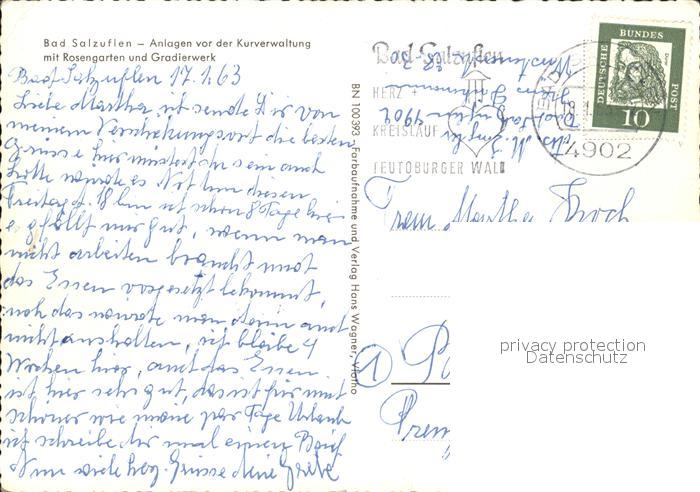 Bad Salzuflen – Anlagen vor der Kurverwaltung
mit Rosengarten und Gradierwerk
Bad Salzuflen 17.1.63
Liebe Martha, ich sende Dir von
meinem Verschickungsort die besten
Grüsse hier musste ich sein auch
bitte wurde es Not um diesen
Freitag d. 18 bin ich schon 8 Tage hier
es gefällt mir gut, wenn man
nicht arbeiten braucht und
das Essen vorgesetzt bekommt,
noch das würde man dann auch
nicht aushalten, ich bleibe 4
Wochen hier, auch das Essen
ist hier sehr gut, das ist für mich
schöner wie meine par Tage Urlaub
ich schreibe dir mal einen Brief
Nun viele herz. Grüsse deine Grete
BN 100393 Farbaufnahme und Verlag Hans Wagner, Vlotho
Bad Salzuflen
HERZ +
KREISLAUF
TEUTOBURGER WALD
4902
DEUTSCHE
BUNDES
POST
10
Frau Martha Koch
1
privacy protection
Datenschutz